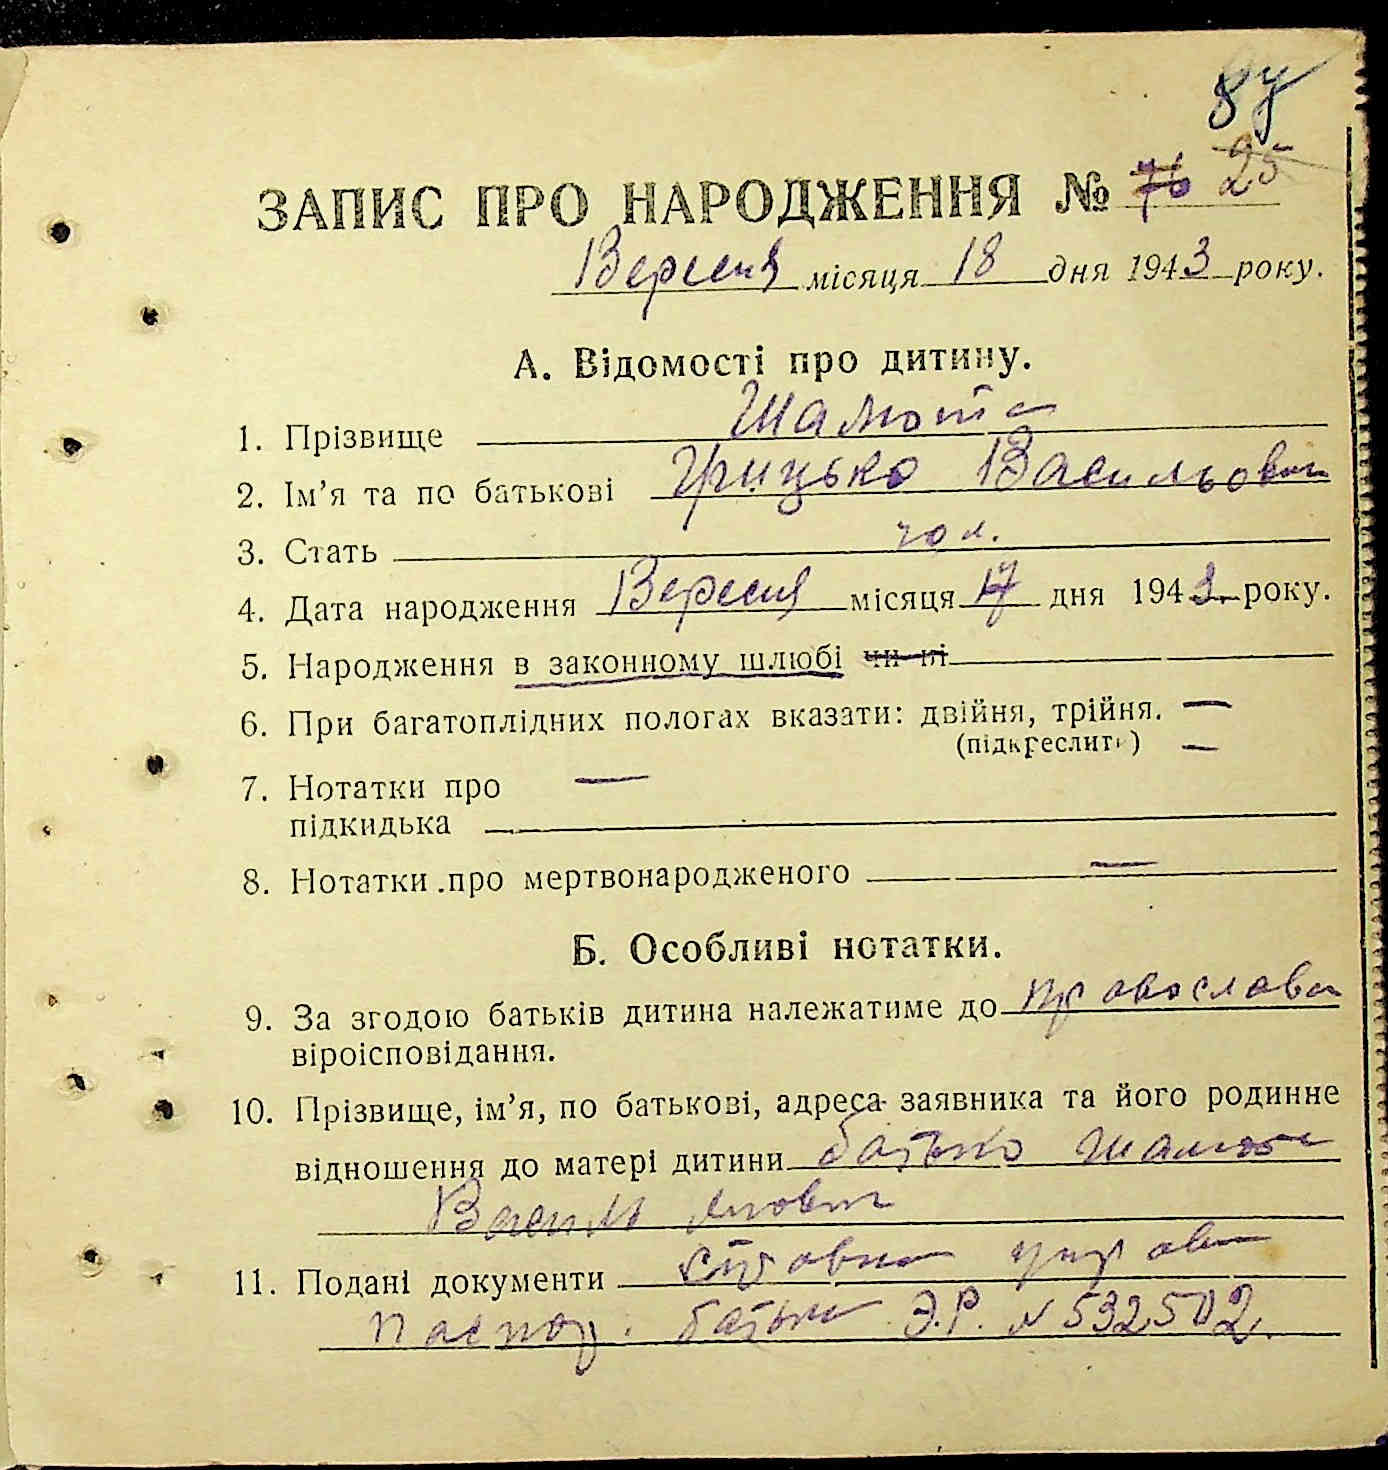 87
ЗАПИС ПРО НАРОДЖЕННЯ № 76 25
Вересня місяця 18 дня 1943 року.
А. Відомості про дитину.
1. Прізвище Шамота
2. Ім’я та по батькові Грицько Васильович
3. Стать чол.
4. Дата народження Вересня місяця 17 дня 1943 року.
5. Народження в законному шлюбі чи ні
6. При багатоплідних пологах вказати: двійня, трійня. —
(підкреслити) —
7. Нотатки про —
підкидька
8. Нотатки про мертвонародженого —
Б. Особливі нотатки.
9. За згодою батьків дитина належатиме до православн
віроісповідання.
10. Прізвище, ім’я, по батькові, адреса заявника та його родинне
відношення до матері дитини батько Шамота
Василь
11. Подані документи управи
паспор. батька Э.Р. № 532502.